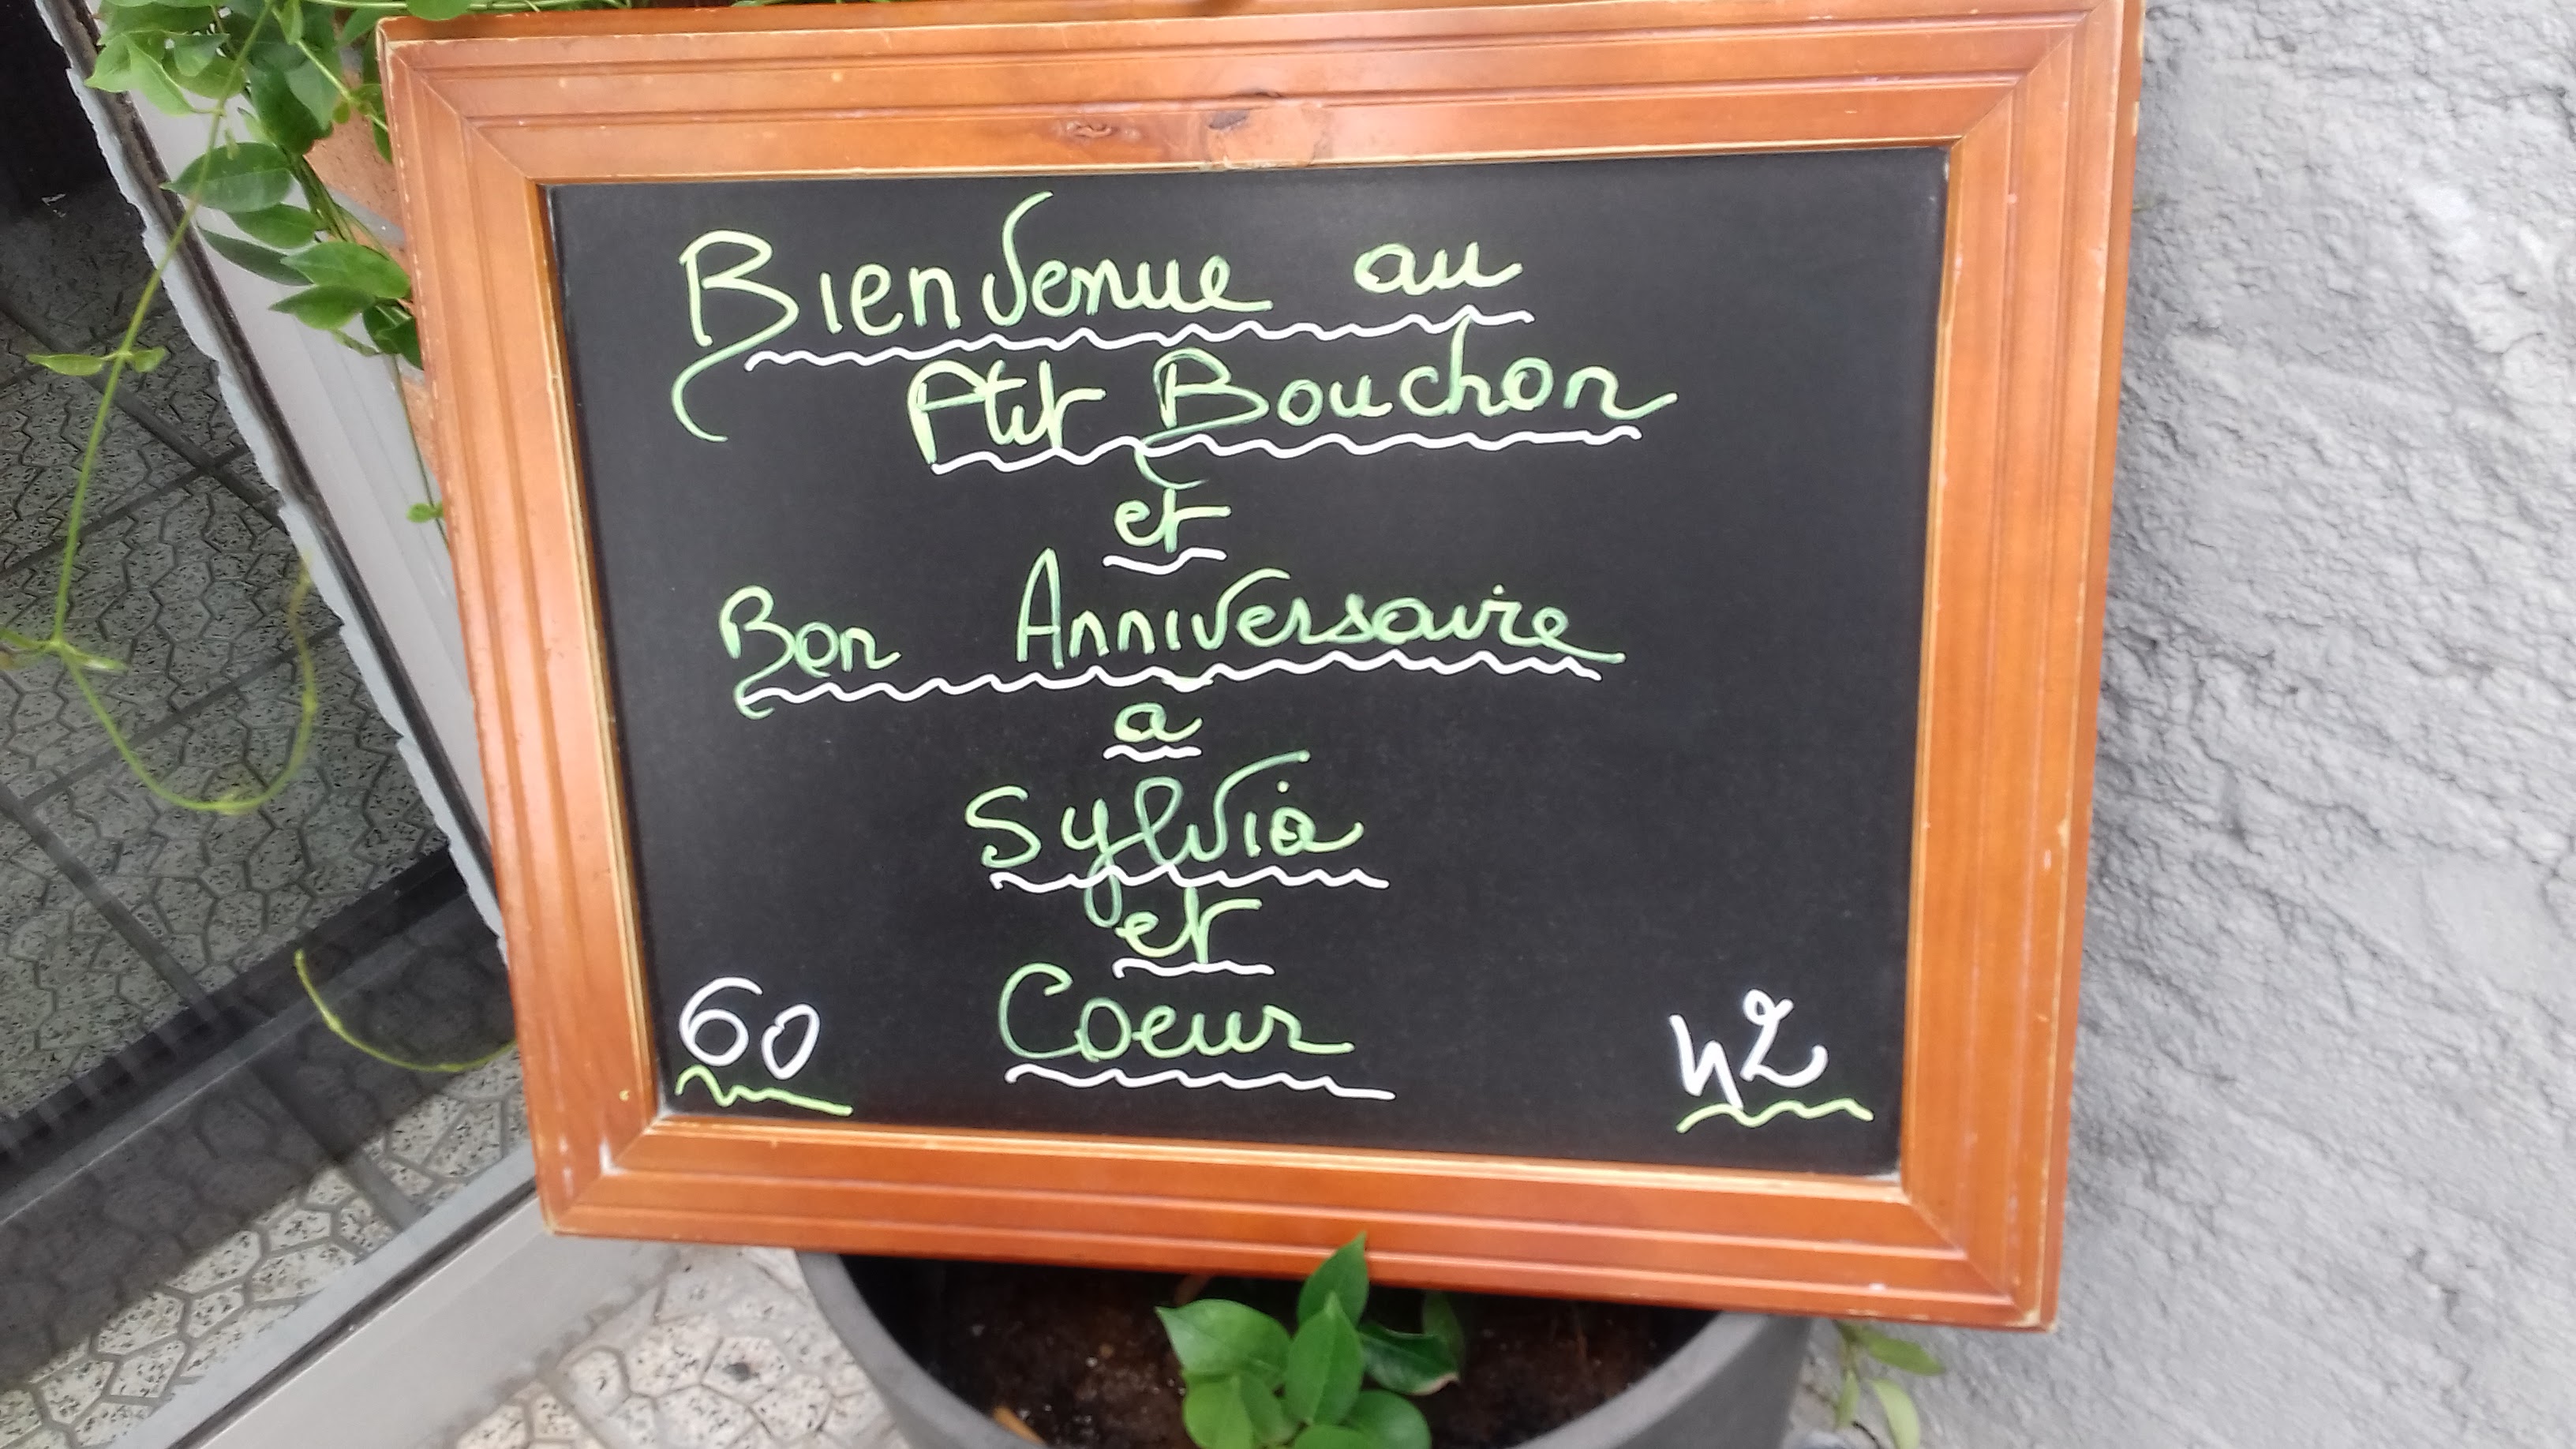 Bienvenue au
Ptit Bouchon
et
Bon Anniversaire
a
Sylvia
et
Coeur
60
42